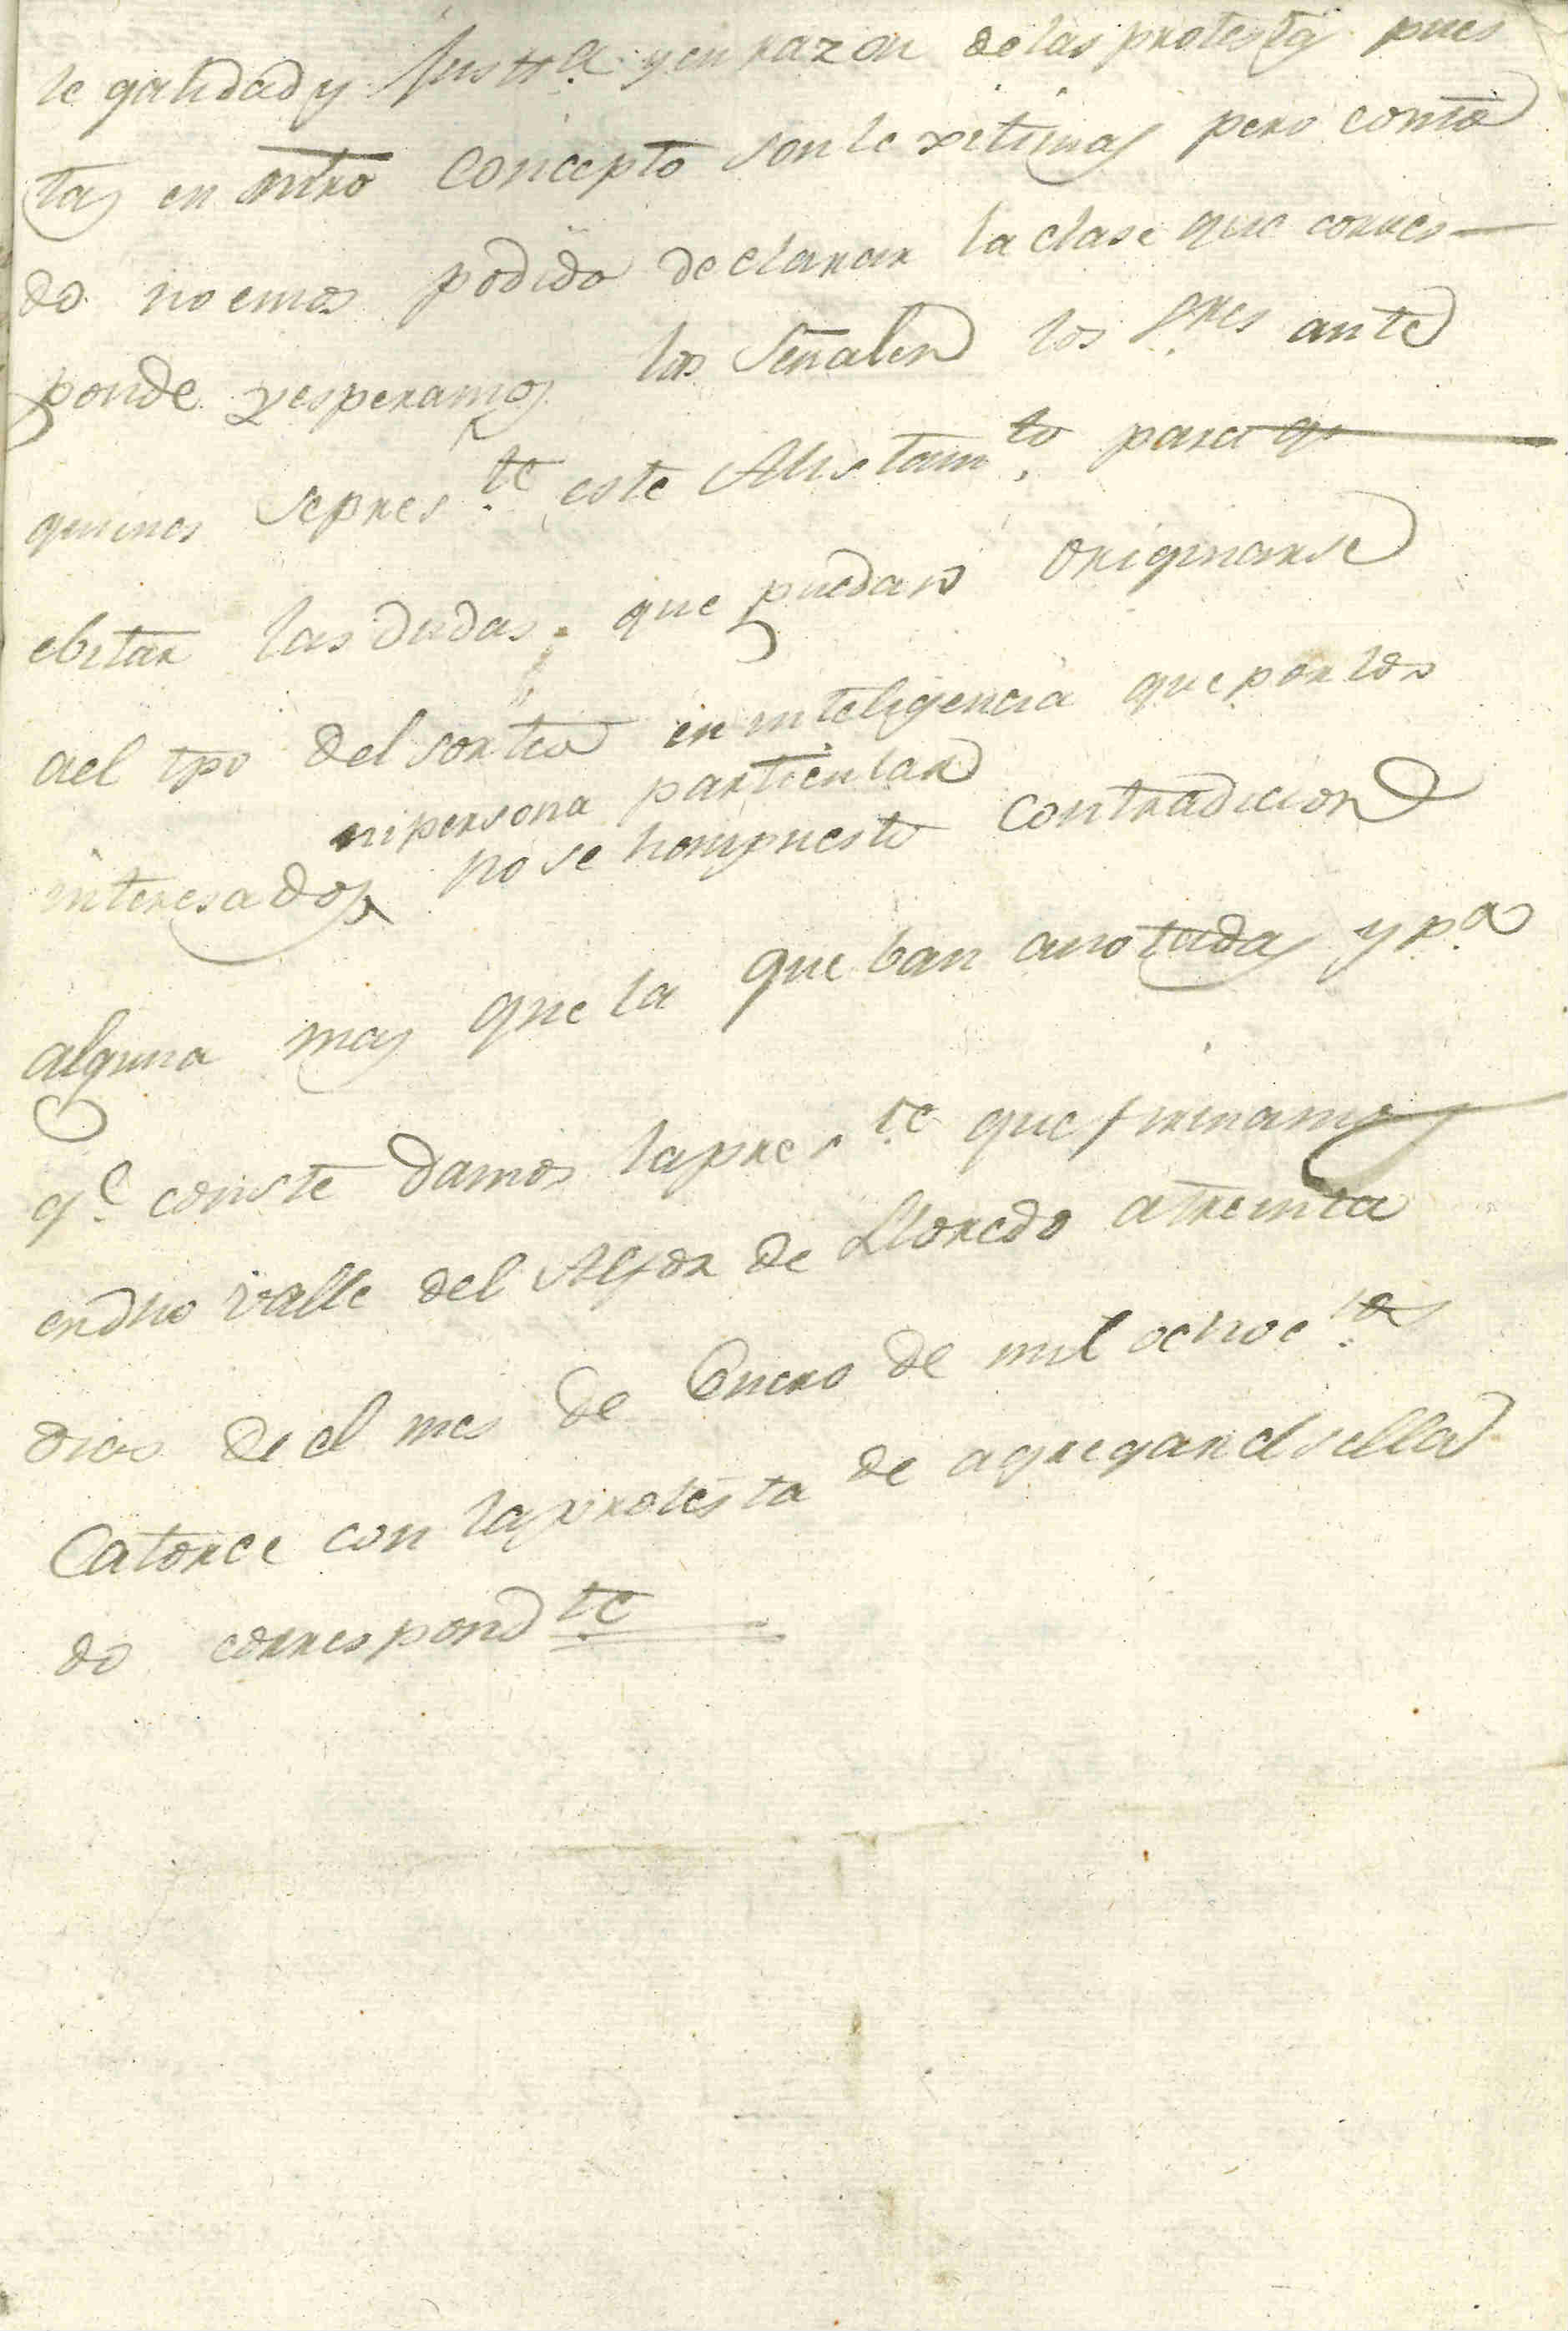 le galidad y Just.ª y en razon de las protestas pues
tas en ntro concepto son le xitimas pero como
do no emos podido declarar la clase que corres
ponde y esperamos los señalen los S.res ante
quienes se pres.te este Alistam.to para q.e
ebitar las dudas que puedan originarse
a el tpo del sorteo en inteligencia que por los
ni persona particular
interesados no se ha mpuesto contradicion
alguna mas que la que ban anotadas y p.ª
q.e conste damos la pres.te que firmamos
en dho Valle del Alfoz de Lloredo a treinta
dias de el mes de Enero de mil ochoc.tos
Catorce con la protesta de agregar el sella
do correspond.te